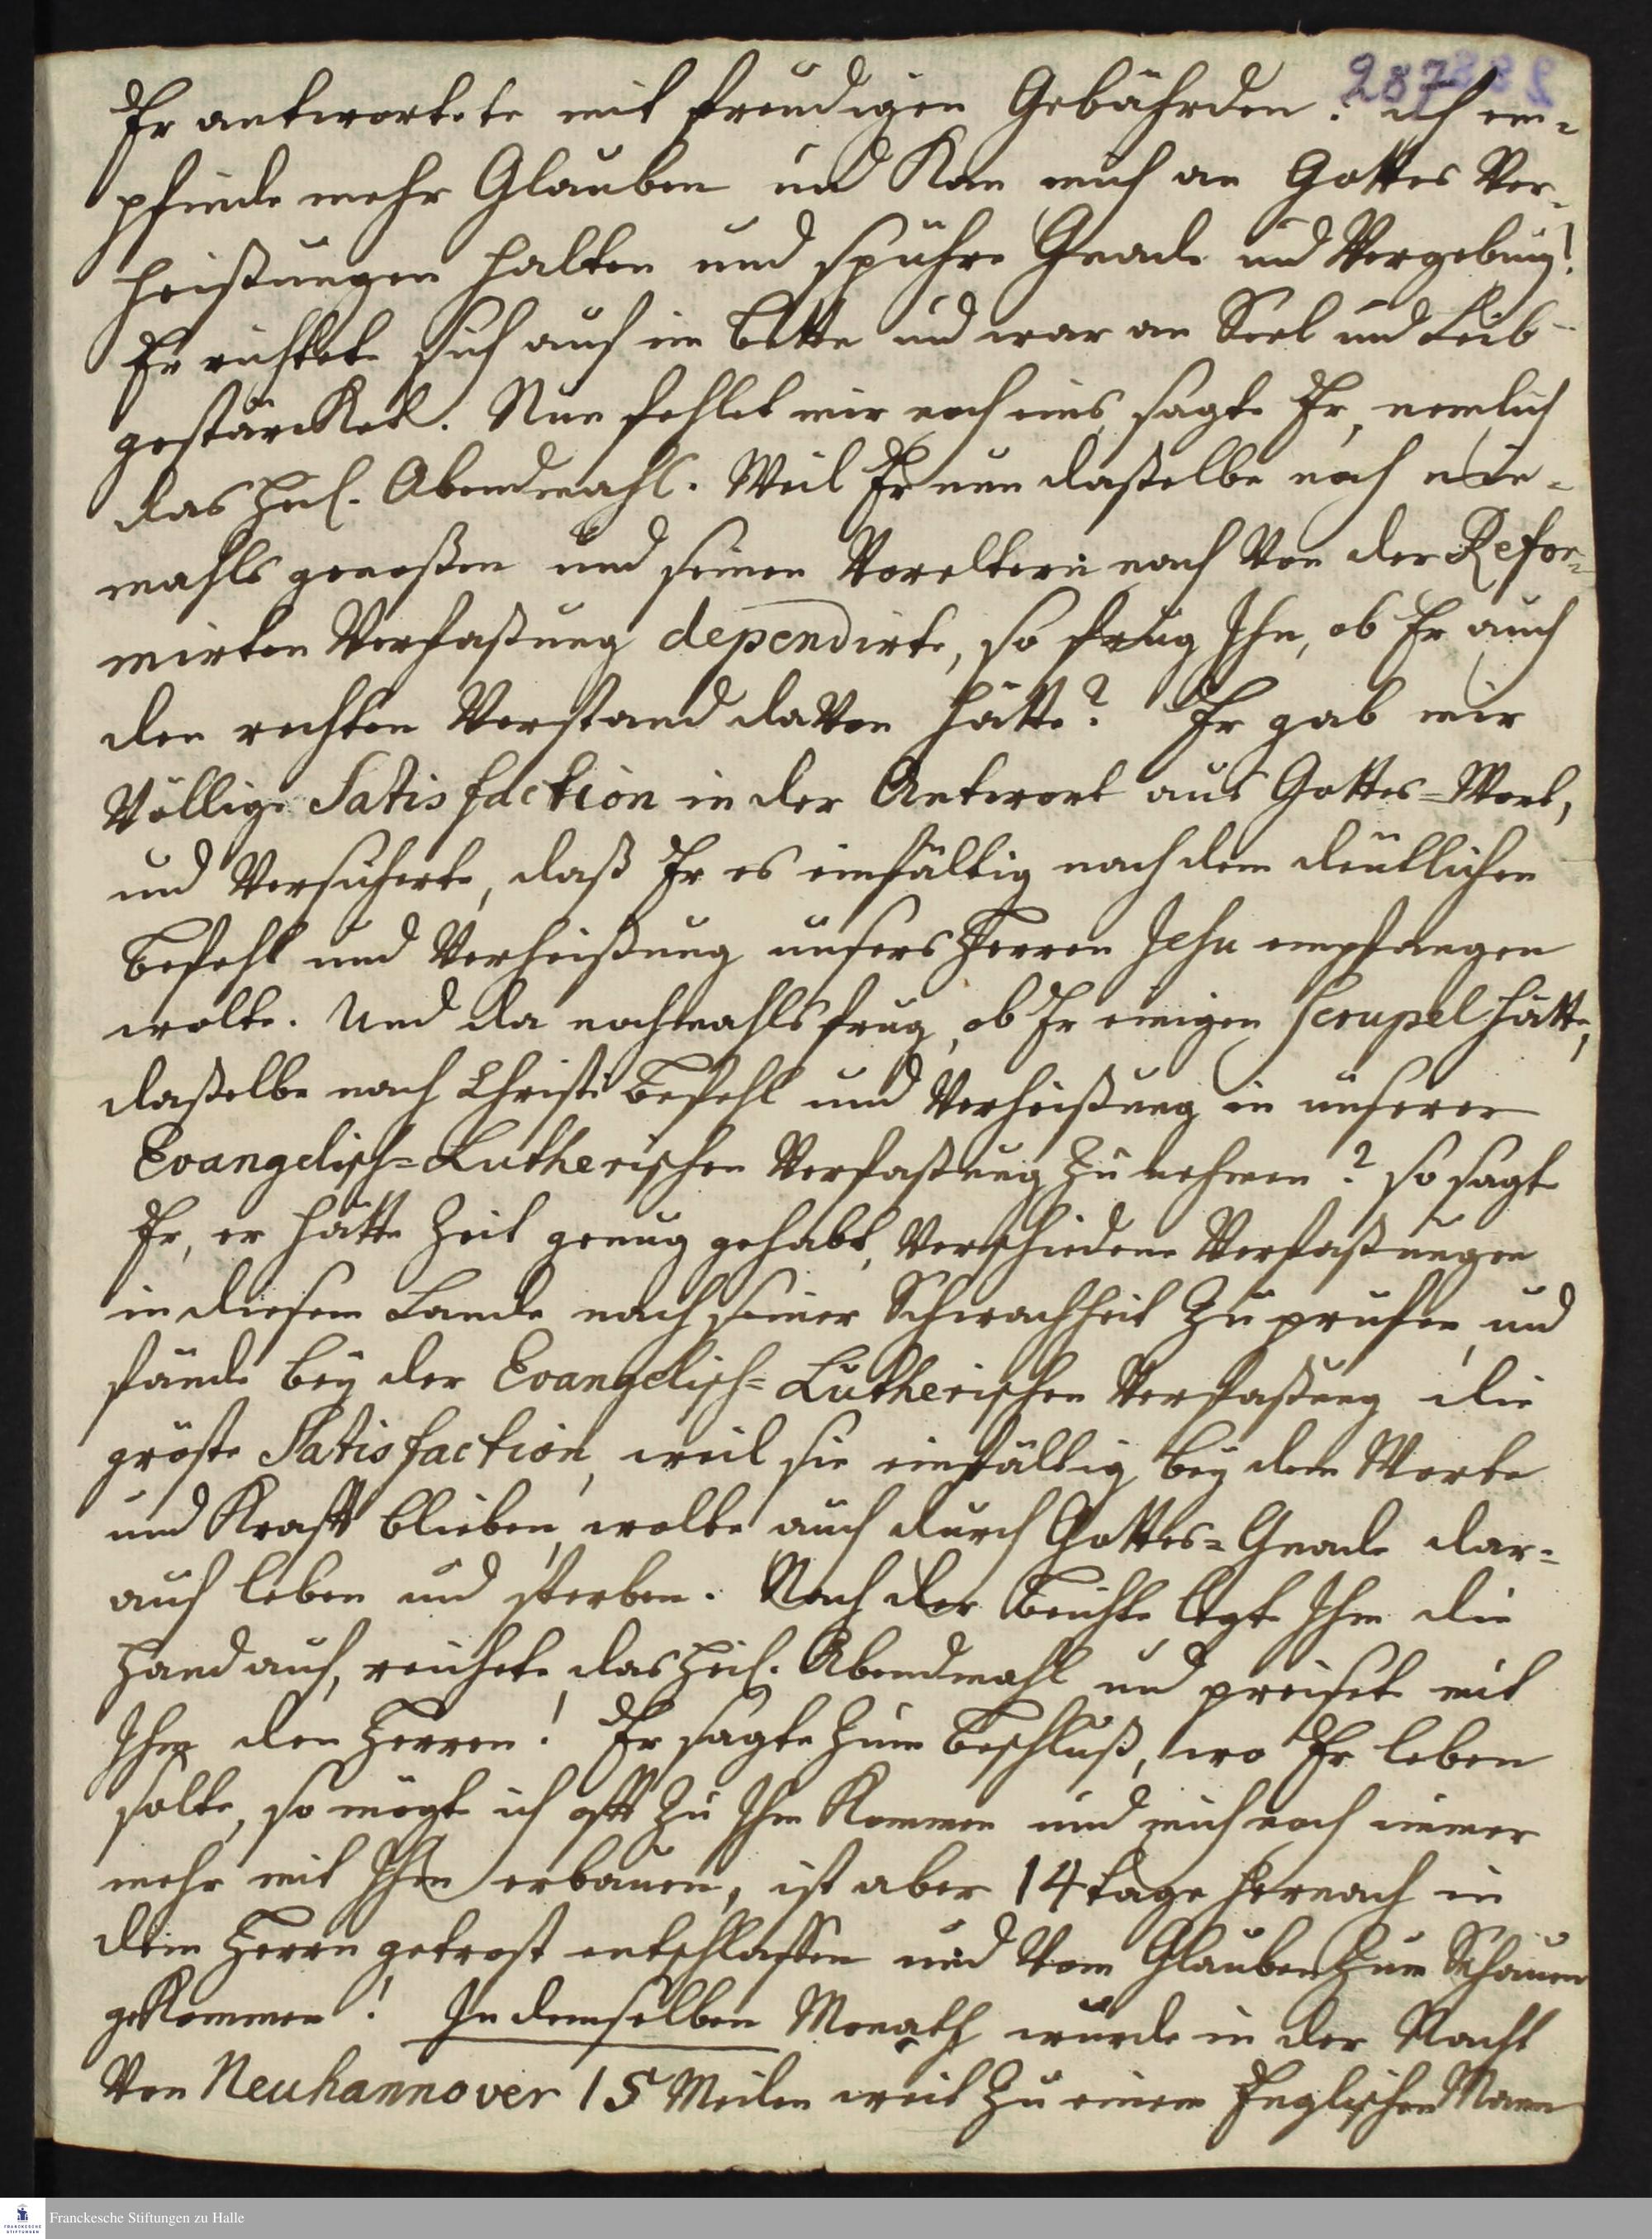 287
Er antwortete mit freudigen Gebährden: ich em-
pfinde mehr Glauben und kan mich an Gottes Ver-
heißungen halten und spühre Gnade und Vergebung!
Er richtete sich auf im Bette und war an Seel und Leib
gestärcket. Nun fehlet mir noch eins, sagte Er, nemlich
das Heil. Abendmahl. Weil Er nun daßelbe noch nie-
mahls genoßen und seinen Voreltern nach von der Refor-
mirten Verfaßung dependirte, so frug Ihn, ob Er auch
den rechten Verstand davon hätte? Er gab mir
völlige Satisfaction in der Antwort aus Gottes-Wort,
und versicherte, daß Er es einfältig nach dem deütlichen
Befehl und Verheißung unsers Herren Jesu empfangen
wolte. Und da nochmahls frug, ob Er einigen Scrupel hätte,
daßelbe nach Christi Befehl und Verheißung in unserer
Evangelisch-Lutherischen Verfaßung zu nehmen? so sagte
Er, er hätte Zeit genug gehabt, verschiedene Verfaßungen
in diesem Lande nach seiner Schwachheit zu prüfen, und
fände bey der Evangelisch-Lutherischen Verfaßung die
gröste Satisfaction, weil sie einfältig bey dem Worte
und Krafft blieben, wolte auch durch Gottes-Gnade dar-
auf leben und sterben. Nach der Beichte legte Ihm die
Hand auf, reichete das Heil. Abendmahl und preisete mit
Ihm den Herren! Er sagte zum Beschluß, wo Er leben
solte, so mögte ich offt zu Ihm kommen und mich noch immer
mehr mit Ihm erbauen, ist aber 14 tage hernach in
dem Herrn getrost entschlaffen und vom Glauben zum Schauen
gekommen! In demselben Monath wurde in der Nacht
von Neuhannover 15 Meilen weit zu einem Englischen Mann
FRANCKESCHE STIFTUNGEN
Franckesche Stiftungen zu Halle